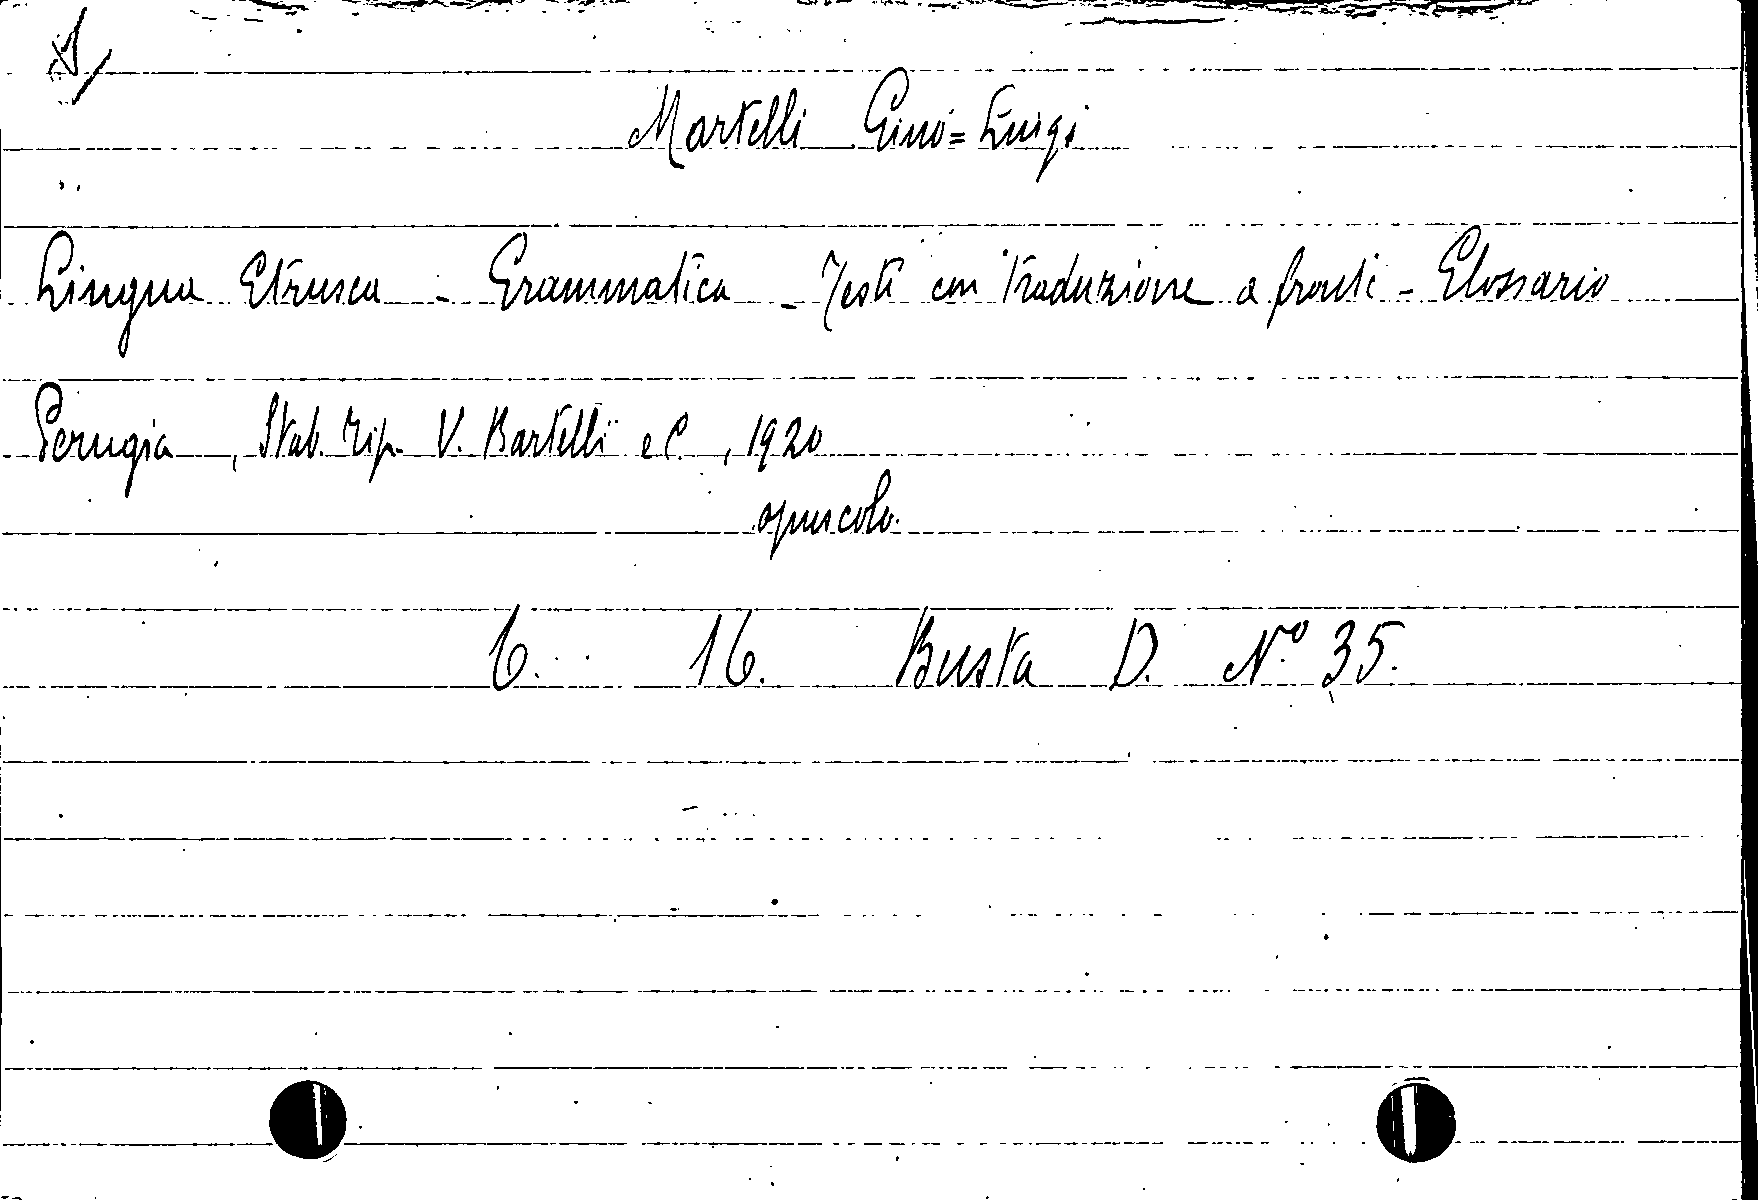 Martelli Gino=Luigi
Lingua Etrusca - Grammatica - Testi con traduzione a fronte - Glossario
Perugia, Stab. Tip. V. Bartelli e C., 1920
opuscolo.
6. 16. Busta D. N.º 35.